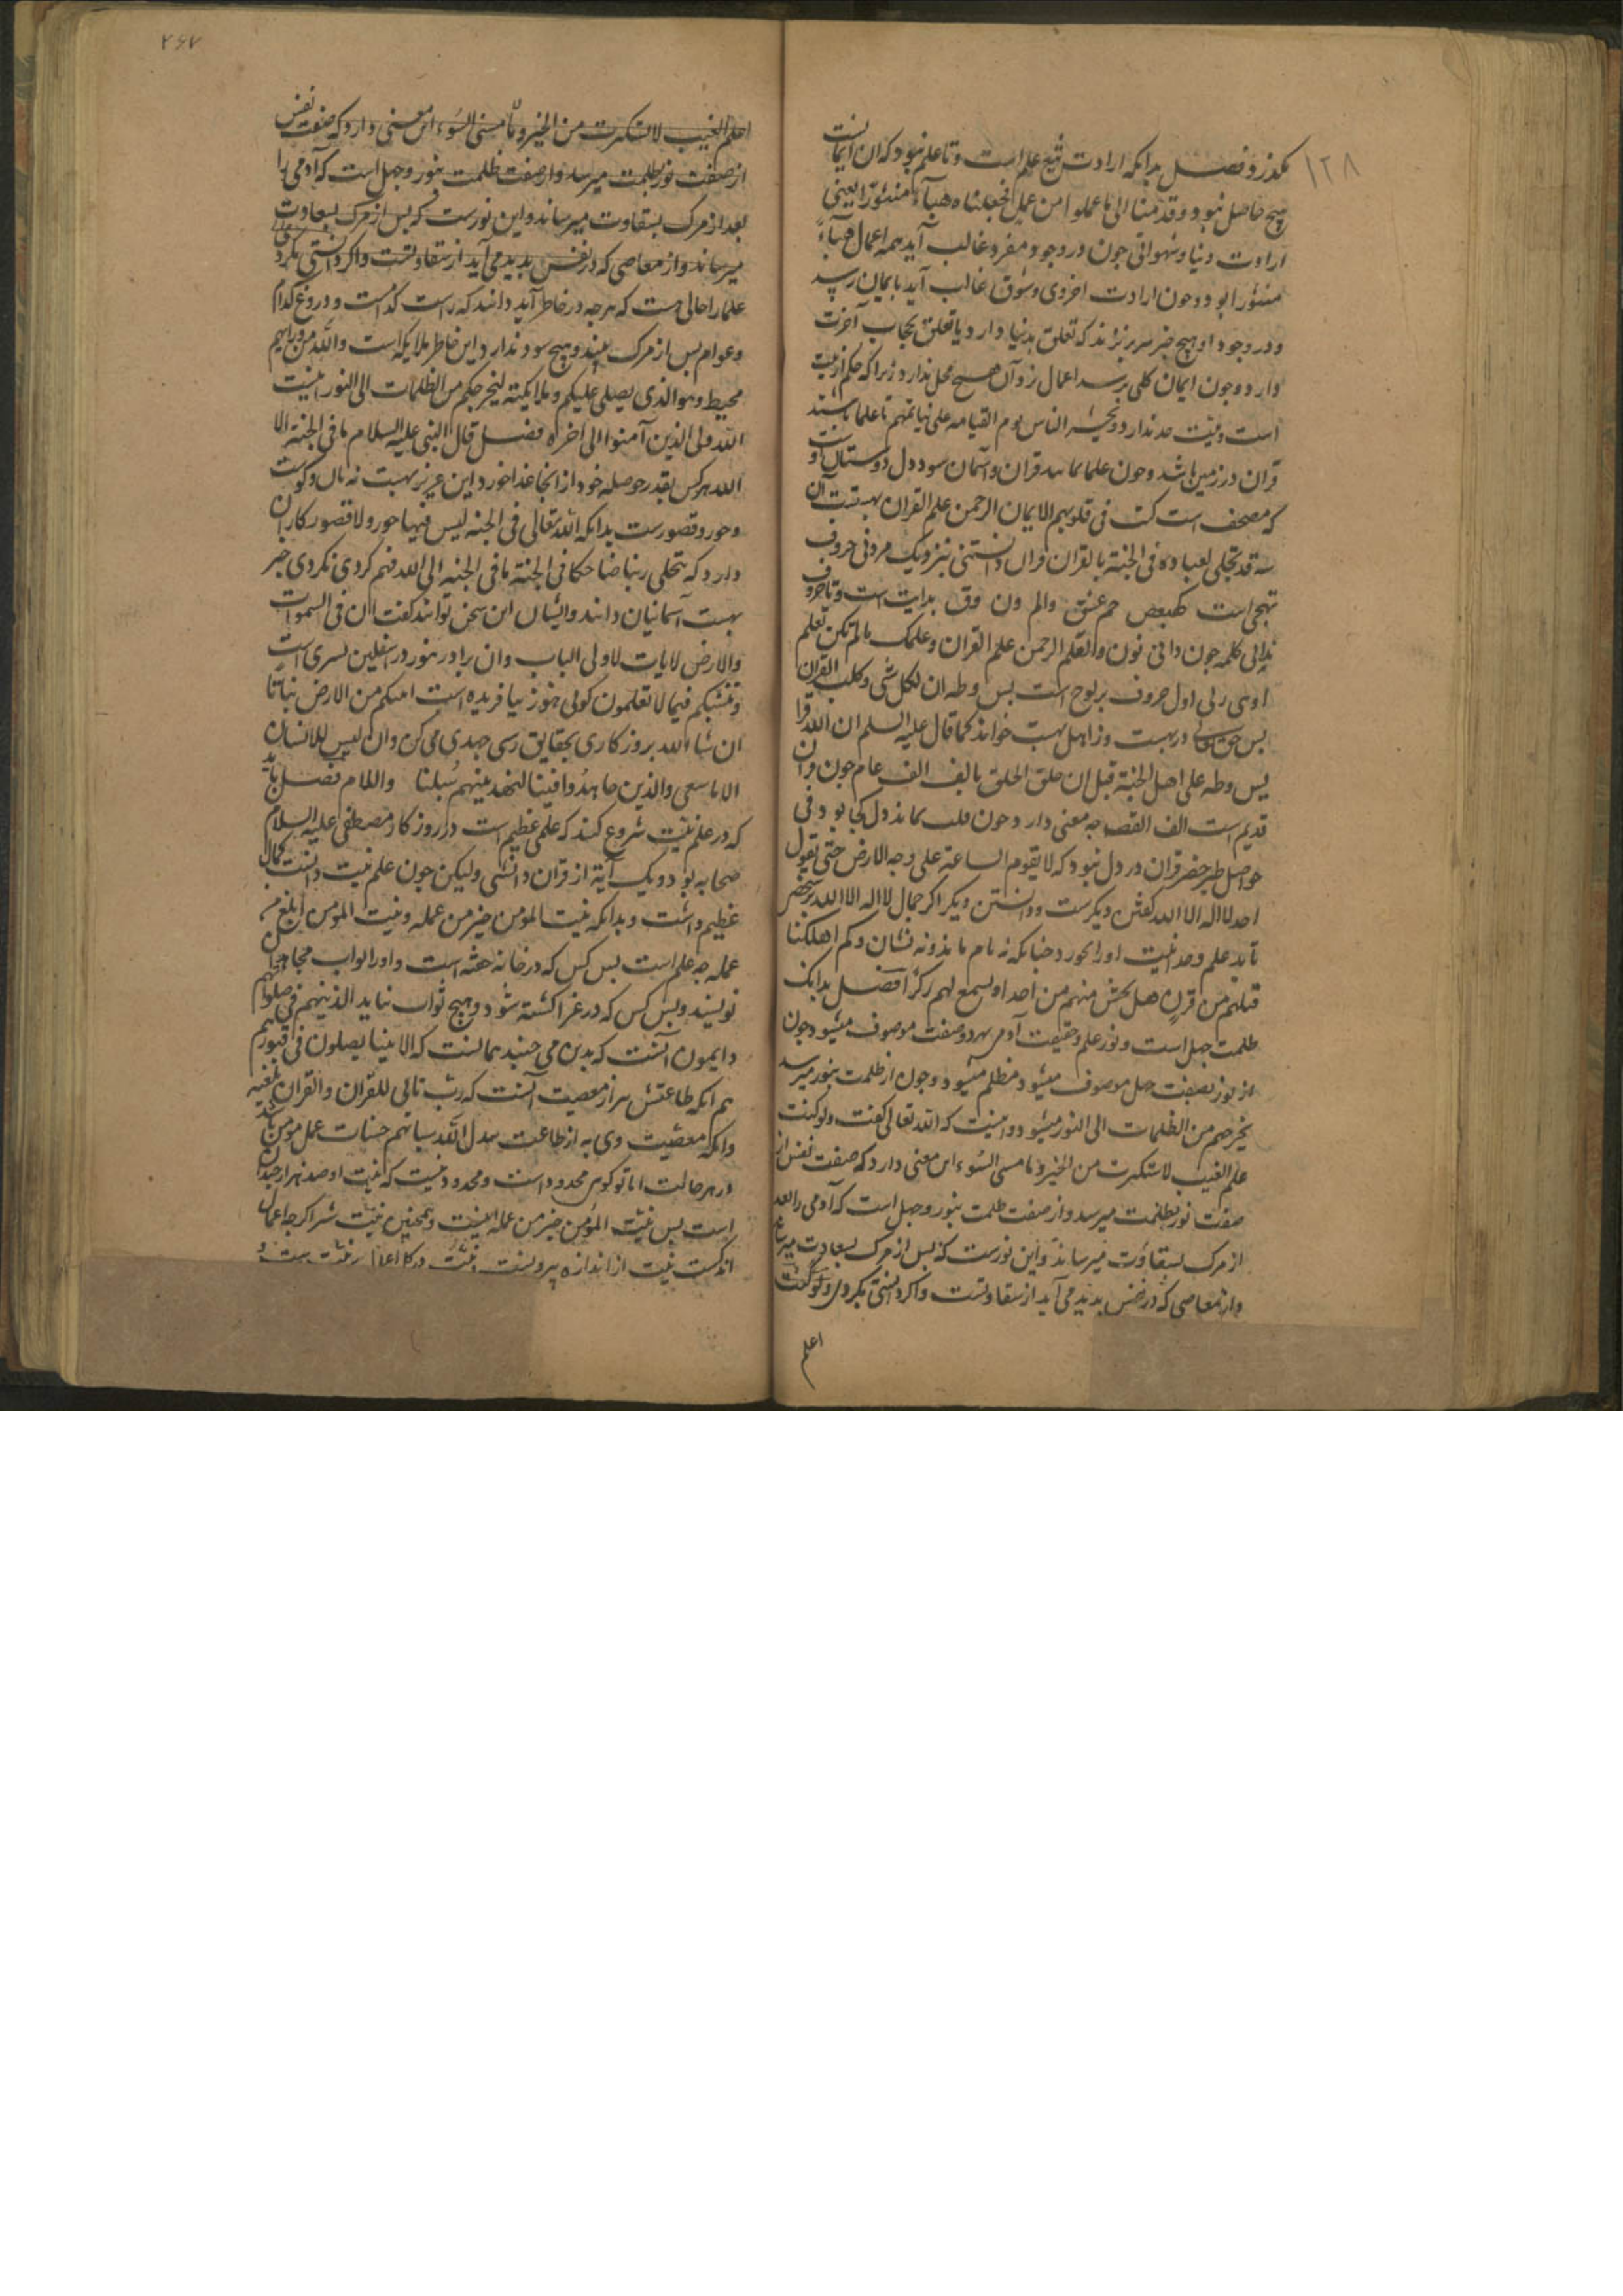 ۱۲۸
بگذرد فصل بدانکه ارادت تبع علم است و تا علم نبود که ان ایمانست
هیچ حاصل نبود و قدمنا الی ما عملوا من عمل فجعلناه هباء منثورا یعنی
ارادت دنیا و شهوانی جون در وجود مفرد غالب آید همه اعمال هباءً
منثورا بود و جون ارادت اخروی و شوق غالب آید بایمان رسد
و در وجود او هیچ خبر سر بر نزند که تعلق بدنیا دارد یا تعلق بحجاب آخرت
دارد و جون ایمان کلی برسد اعمال زو آن هیچ محل ندارد زیرا که حکم از نیت
است و نیت حد ندارد و یحشر الناس یوم القیامه علی نیاتهم تا علما باشند
قران در زمین باشد و جون علما نمانند قران و آسمان سود دل دوستان او
که مصحف است کتب فی قلوبهم الایمان الرحمن علم القران
قد تجلی لعباده فی الجنة بالقران قران دانستنی نزدیک حروف
تهجی است کهیعص حم عسق والم ون وق بدایت است و تا حروف
کلمه جون دانی نون والقلم الرحمن علم القران وعلمک مالم تکن تعلم
اول حروف بر لوح است یس وطه ان لکل شی وقلب القران
یس حق تعالی در بهشت وز اهل بهشت خواند کما قال علیه السلم ان الله قرا
یس وطه علی اهل الجنة قبل ان خلق الخلق بالف الف عام جون قران
قدیم است الف القصه جه معنی دارد و جون قلب نماند دل کجا بود فی
حواصل طیر خضر قران در دل نبود که لا یقوم الساعة علی وجه الارض حتی یقول
احد لا اله الا الله گفتن دیکرست و دانستن دیکر اکر جمال لا اله الا الله بر شخص
تابد علم وحدانیت اورا بخورد جنانکه نه نام ماند و نه نشان وکم اهلکنا
قبلهم من قرن هل تحس منهم من احد او تسمع لهم رکزا فصل بدانک
ظلمت جهل است و نور علم و حقیقت آدمی بهر دو صفت موصوف میشود جون
از نور بصفت جهل موصوف میشود مظلم میشود و جون از ظلمت بنور میرسد
یخرجهم من الظلمات الی النور میشود و اینست که الله تعالی گفت ولو کنت
علم الغیب لاستکثرت من الخیر وما مسنی السوء این معنی دارد که صفت نفس از
صفت نور بظلمت میرسد و از صفت ظلمت بنور و جهل است که آدمی را بعد
از مرک بشقاوت میرساند و این نورست که بس از مرک بسعادت میرساند
و از معاصی که در نفس بدید می آید از شقاوتست و اکر دانستی نکردی ولو کنت
اعلم
۲۶۷
اعلم الغیب لاستکثرت من الخیر وما مسنی السوء این معنی دارد که صفت نفس
از صفت نور بظلمت میرسد و از صفت ظلمت بنور و جهل است که آدمی را
بعد از مرک بشقاوت میرساند و این نورست که بس از مرک بسعادت
میرساند و از معاصی که در نفس بدید می آید از شقاوتست و اکر دانستی نکردی
علما را حالی هست که هرجه در خاطر آید دانند که راست کدامست و دروغ کدام
و عوام بس از مرک بینند و هیچ سود ندارد این خاطر ملایکه است والله من ورایهم
محیط وهو الذی یصلی علیکم وملایکته لیخرجکم من الظلمات الی النور اینست
الله ولی الذین آمنوا الی اخره فصل قال النبی علیه السلام ما فی الجنة الا
الله هرکس بقدر حوصله خود از انجا غذا خورد این عزیز بهشت نه نان و کوشت
و حور و قصورست بدانکه الله تعالی فی الجنة لیس فیها حور ولا قصور کار ان
دارد که یتجلی ربنا ضاحکا فی الجنة ما فی الجنه الی الله فهم کردی نکردی خبر
بهشت آسمانیان دانند و ایشان این سخن توانند گفت ان فی السموات
والارض لایات لاولی الالباب
وننشئکم فیما لا تعلمون کوئی هنوز نیافریده است انبتکم من الارض نباتا
ان شاء الله بروزکاری بحقایق رسی جهدی می کن وان لیس للانسان
الا ما سعی والذین جاهدوا فینا لنهدینهم سبلنا والسلام فصل باید
که در علم نیت شروع کنند که علمی عظیم است در روزکار مصطفی علیه السلام
صحابه بودند یک آیة از قران دانستی ولیکن جون علم نیت دانست کمال
عظیم داشت و بدانکه نیت المومن خیر من عمله ونیت المومن ابلغ من
عمله جه علم است بس کس که در خانه خفته است و اورا ثواب مجاهدان
نویسند و بس کس که در غزا کشته شود و هیچ ثواب نیابد الذین هم فی صلوتهم
دایمون آنست که بدن می جنبد همانست که الانبیا یصلون فی قبورهم
هم انکه طاعتش به از معصیت آنست که رب تالی للقران والقران یلعنه
وانکه معصیت وی به از طاعت یبدل الله سیاتهم حسنات عمل مومن باشد
در هر حالت اما تو کوی محدود است و محدود نیست که نیت او صد هزار جندان
است بس نیت المومن خیر من عمله اینست و همجنین نیت شر اکر جه اعمال
اندکست نیت از اندازه بیرونست